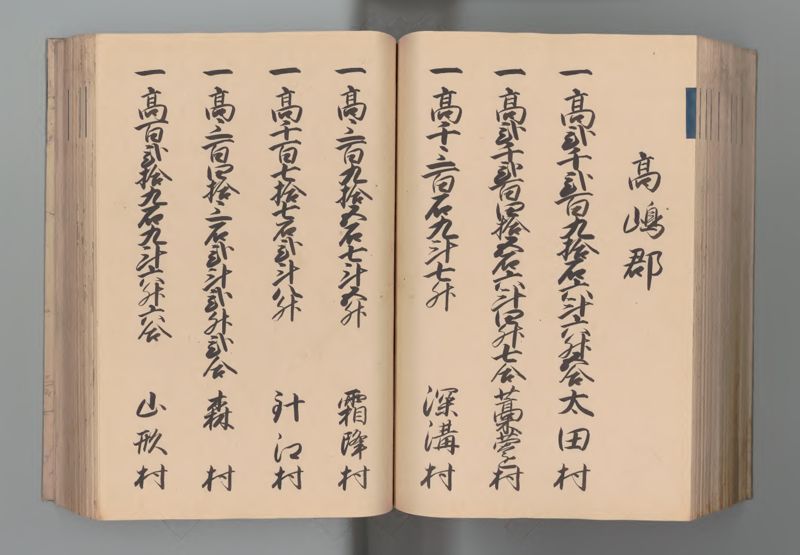 高嶋郡
一高弐千弐百九拾石六斗六升五合太田村
一高弐千弐百四拾五石六斗四升七合藁園村
一高千三百石九斗七升 深溝村
一高三百九拾五石七斗五升 霜降村
一高千百七拾七石弐斗八升 針江村
一高三百四拾三石弐斗弐升弐合 森村
一高百弐拾九石九斗六升六合 山形村